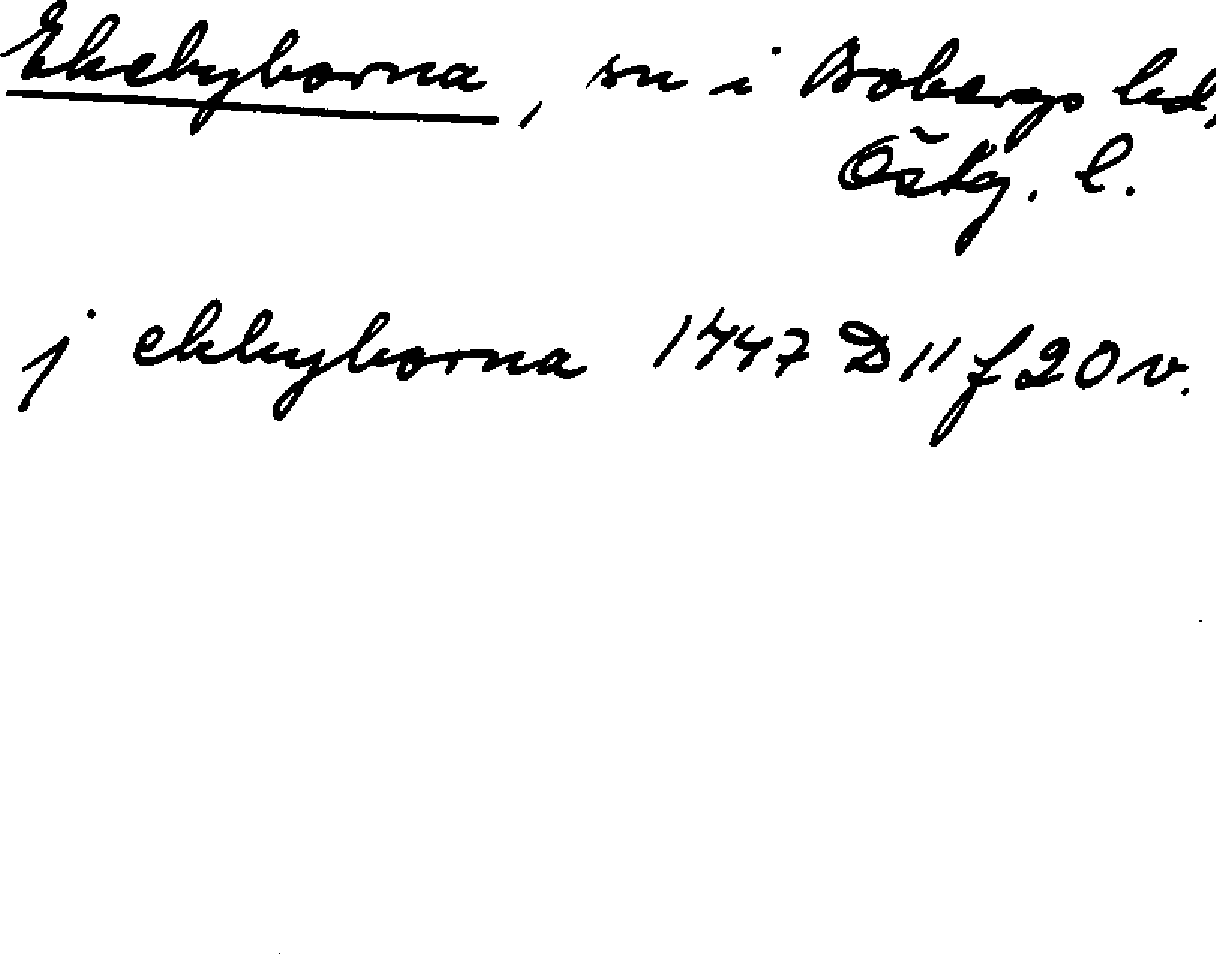 Ekebyborna, sn i Bobergs hd,
Östg. l.
j ekbyborna 1447 D 11 f 20 v.